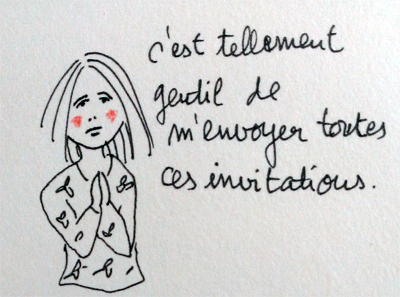 c'est tellement
gentil de
m'envoyer toutes
ces invitations.